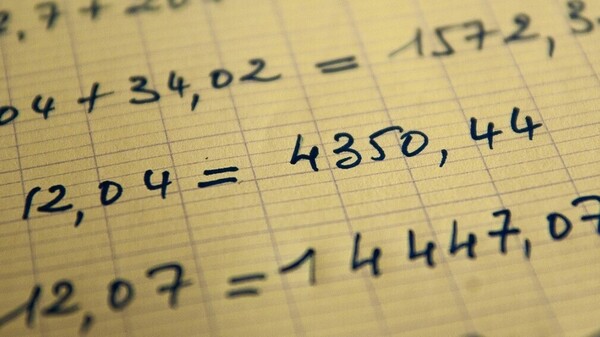 ,7 + 20
04 + 34,02 = 1572,3
12,04 = 4350,44
12,07 = 14447,07